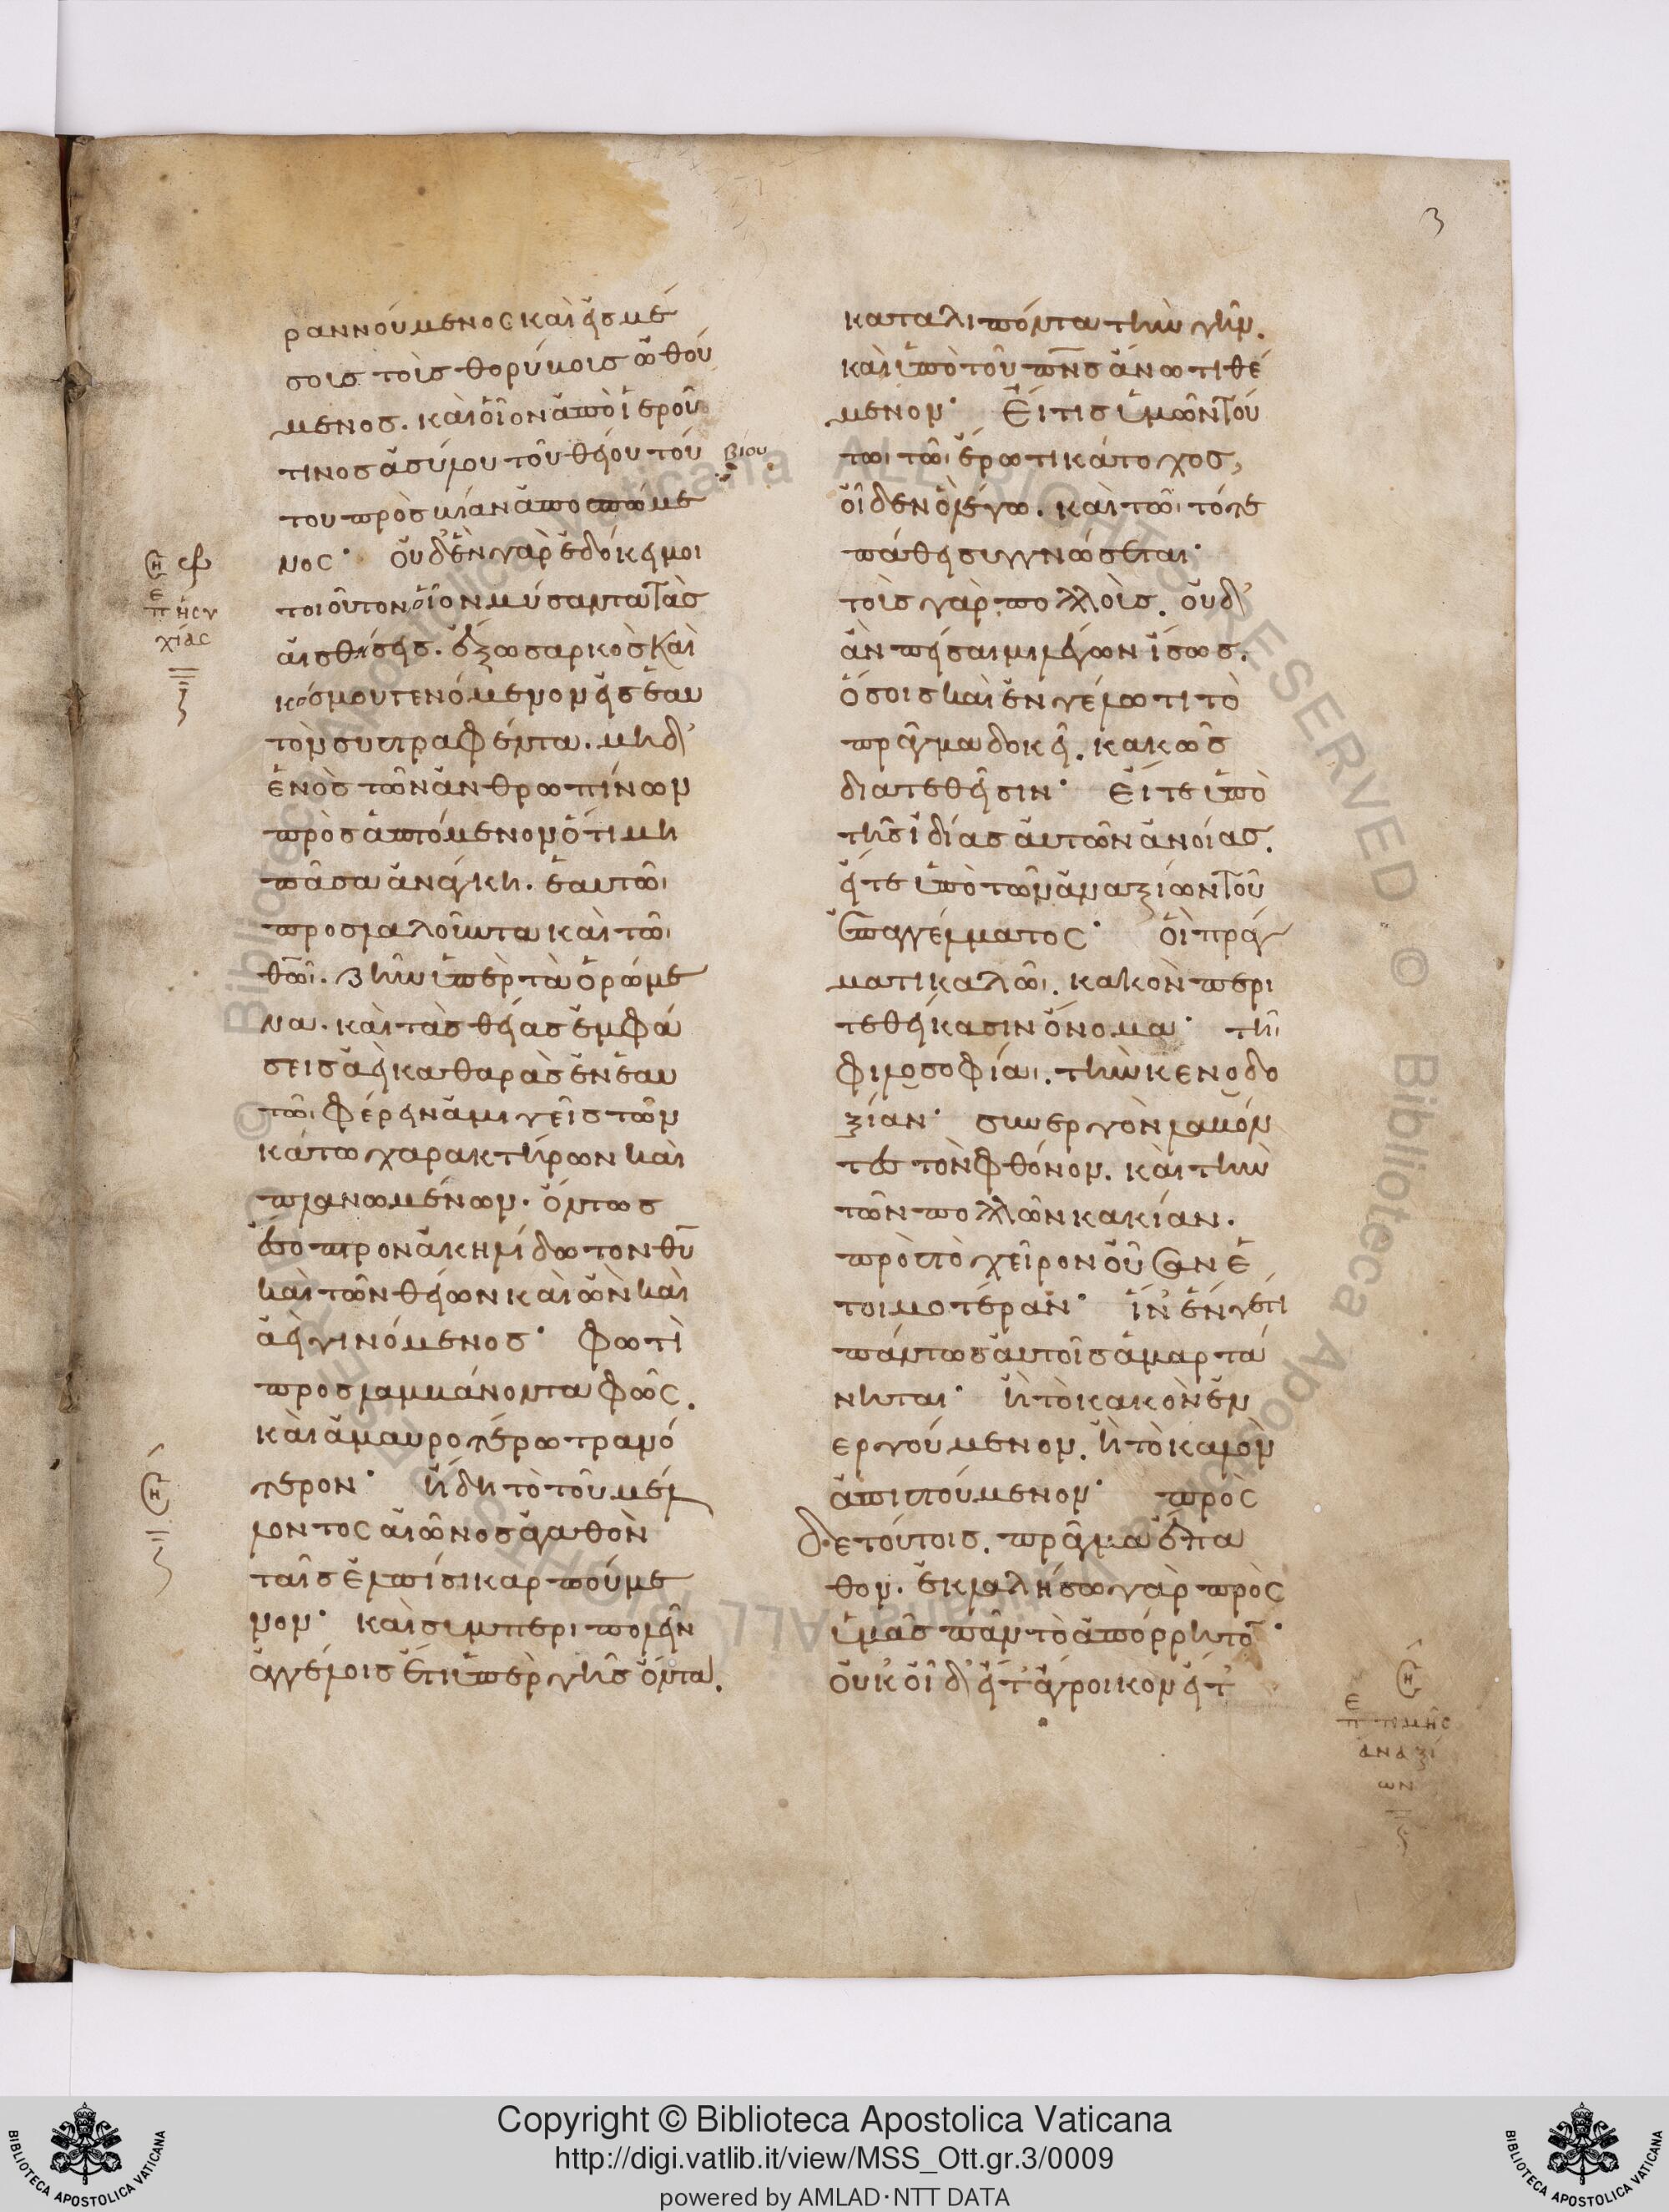 3
ραννούμενος καὶ εἰσ μέ
σοισ τοῖσ θορύβοισ ὠθού
μενοσ. καὶ οἷον ἀπὸ ἱεροῦ
τινοσ ἀσύλου τοῦ θείου τού
βίου
του πρὸσ βίαν ἀποσπώμε
νος· οὐδὲν γὰρ ἐδόκει μοι
τοιοῦτον οἷον μύσαντα τὰσ
αἰσθήσεισ. ἔξω σαρκὸσ καὶ
κόσμου γενόμενον εἰσ ἑαυ
τὸν συστραφέντα. μηδ'
ἑνὸσ τῶν ἀνθρωπίνων
προσαπτόμενον ὅτι μὴ
πᾶσα ἀνάγκη. ἑαυτῶι
προσλαλοῦντα καὶ τῶι
θῶι. ζῆν ὑπὲρ τὰ ὁρώμε
να. καὶ τὰσ θείασ ἐμφά
σεισ ἀεὶ καθαρὰσ ἐν ἑαυ
τῶι φέρειν ἀμιγεῖσ τῶν
κάτω χαρακτήρων καὶ
πλανωμένων. ὄντωσ
ἔσοπτρον ἀκηλίδωτον θυ
καὶ τῶν θείων καὶ ὢν καὶ
ἀεὶ γινόμενοσ· φωτὶ
προσλαμβάνοντα φῶς.
καὶ ἀμαυροτέρω τρανό
τερον· ἤδη τὸ τοῦ μέλ
λοντος αἰῶνοσ ἀγαθὸν
ταῖσ ἐλπίσι καρπούμε
νον· καὶ συμπεριπολεῖν
ἀγγέλοισ ἔτι ὑπὲρ γῆσ ὄντα.
καταλιπόντα τὴν γῆν.
καὶ ὑπὸ τοῦ πνσ ἄνω τιθέ
μενον· Εἴ τισ ὑμῶν τού
τωι τῶι ἔρωτι κάτοχοσ,
οἶδεν ὃ λέγω. καὶ τῶι τότε
πάθει συγγνώσεται·
τοῖσ γὰρ πολλοῖσ. οὐδ'
ἂν πείσαιμι λέγων ἴσωσ.
ὅσοισ καὶ ἐν γέλωτι τὸ
πρᾶγμα δοκεῖ. κακῶσ
διατεθεῖσιν· εἴτε ὑπὸ
τῆσ ἰδίασ αὐτῶν ἀνοίασ.
εἴτε ὑπὸ τῶν ἀναξίων τοῦ
ἐπαγγέλματος· οἳ πράγ
ματι καλῶι. κακὸν περι
τεθείκασιν ὄνομα· τῆι
φιλοσοφίαι. τὴν κενοδο
ξίαν· συνεργὸν λαβόν
τες τὸν φθόνον. καὶ τὴν
τῶν πολλῶν κακίαν.
πρὸσ τὸ χεῖρον οὖσαν ἑ
τοιμοτέραν· ἵν' ἕν γέ τι
πάντωσ αὐτοῖσ ἁμαρτά
νηται· ἢ τὸ κακὸν ἐν
εργούμενον. ἢ τὸ καλὸν
ἀπιστούμενον· πρὸς
δὲ τούτοισ. πρᾶγμα ἔπα
θον. ἐκλαλήσω γὰρ πρὸς
ὑμᾶσ πᾶν τὸ ἀπόρρητον·
οὐκ οἶδ' εἴτ' ἄγροικον εἴτ'
ἡσυ
χίας
τιμῆς
ἀναξί
ων
Copyright © Biblioteca Apostolica Vaticana
http://digi.vatlib.it/view/MSS_Ott.gr.3/0009
powered by AMLAD·NTT DATA
BIBLIOTECA APOSTOLICA VATICANA
BIBLIOTECA APOSTOLICA VATICANA